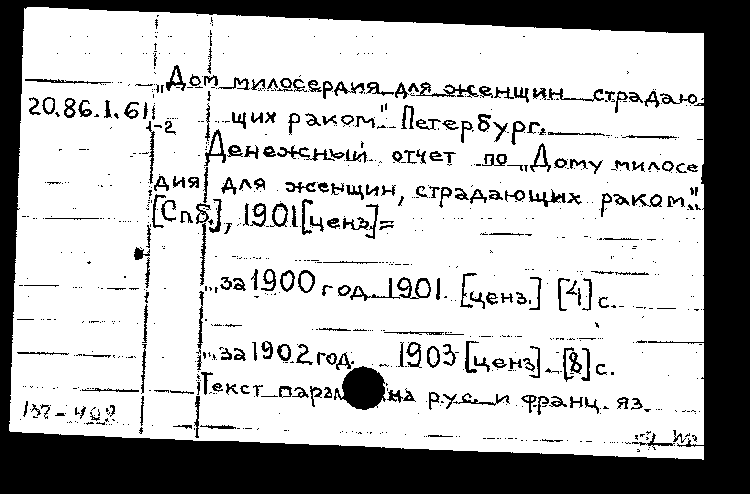 „Дом милосердия для женщин страдаю-
20.86.1.61
1-2
щих раком." Петербург.
Денежный отчет по „Дому милосер
дия для женщин, страдающих раком."
[Спб], 1901 [ценз.]=
„за 1900 год. 1901. [ценз.] [4] с.
„за 1902 год. 1903 [ценз]. [8] с.
Текст парал на рус. и франц. яз.
137-402